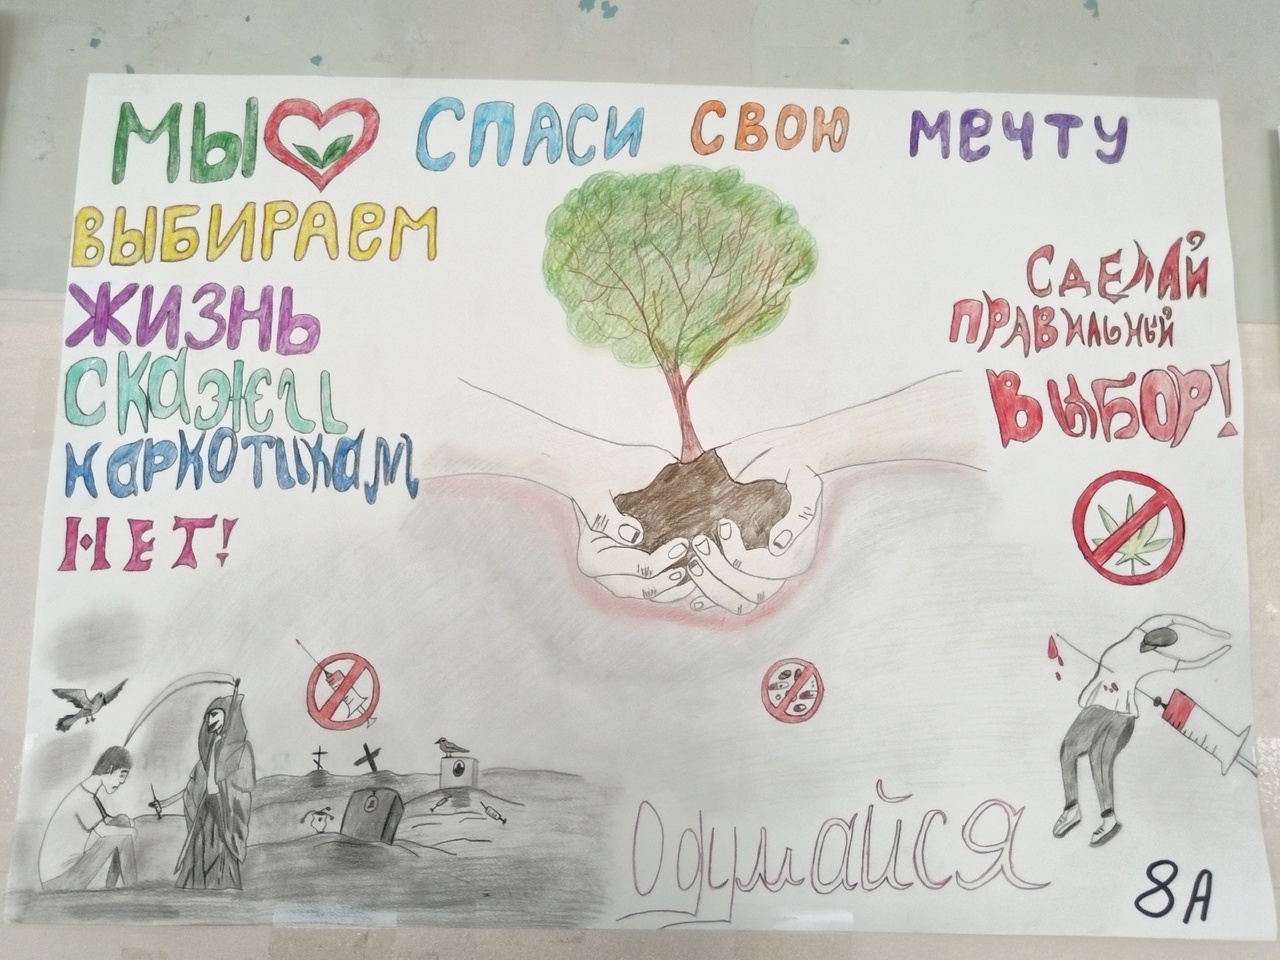 МЫ
ВЫБИРАЕМ
ЖИЗНЬ
СКАЖИ
НАРКОТИКАМ
НЕТ!
СПАСИ СВОЮ МЕЧТУ
СДЕЛАЙ
ПРАВИЛЬНЫЙ
ВЫБОР!
Одумайся
8А